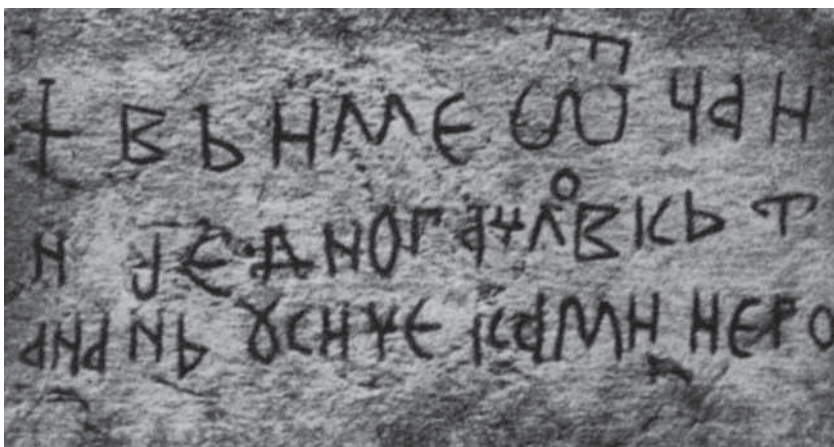 + ВЬ ИМЕ ѾЧА И
И ЈЕДНОГА ЧЛОВКЬ Т
АНАНЬ ꙊСИЧЕ КАМИ НЕРО